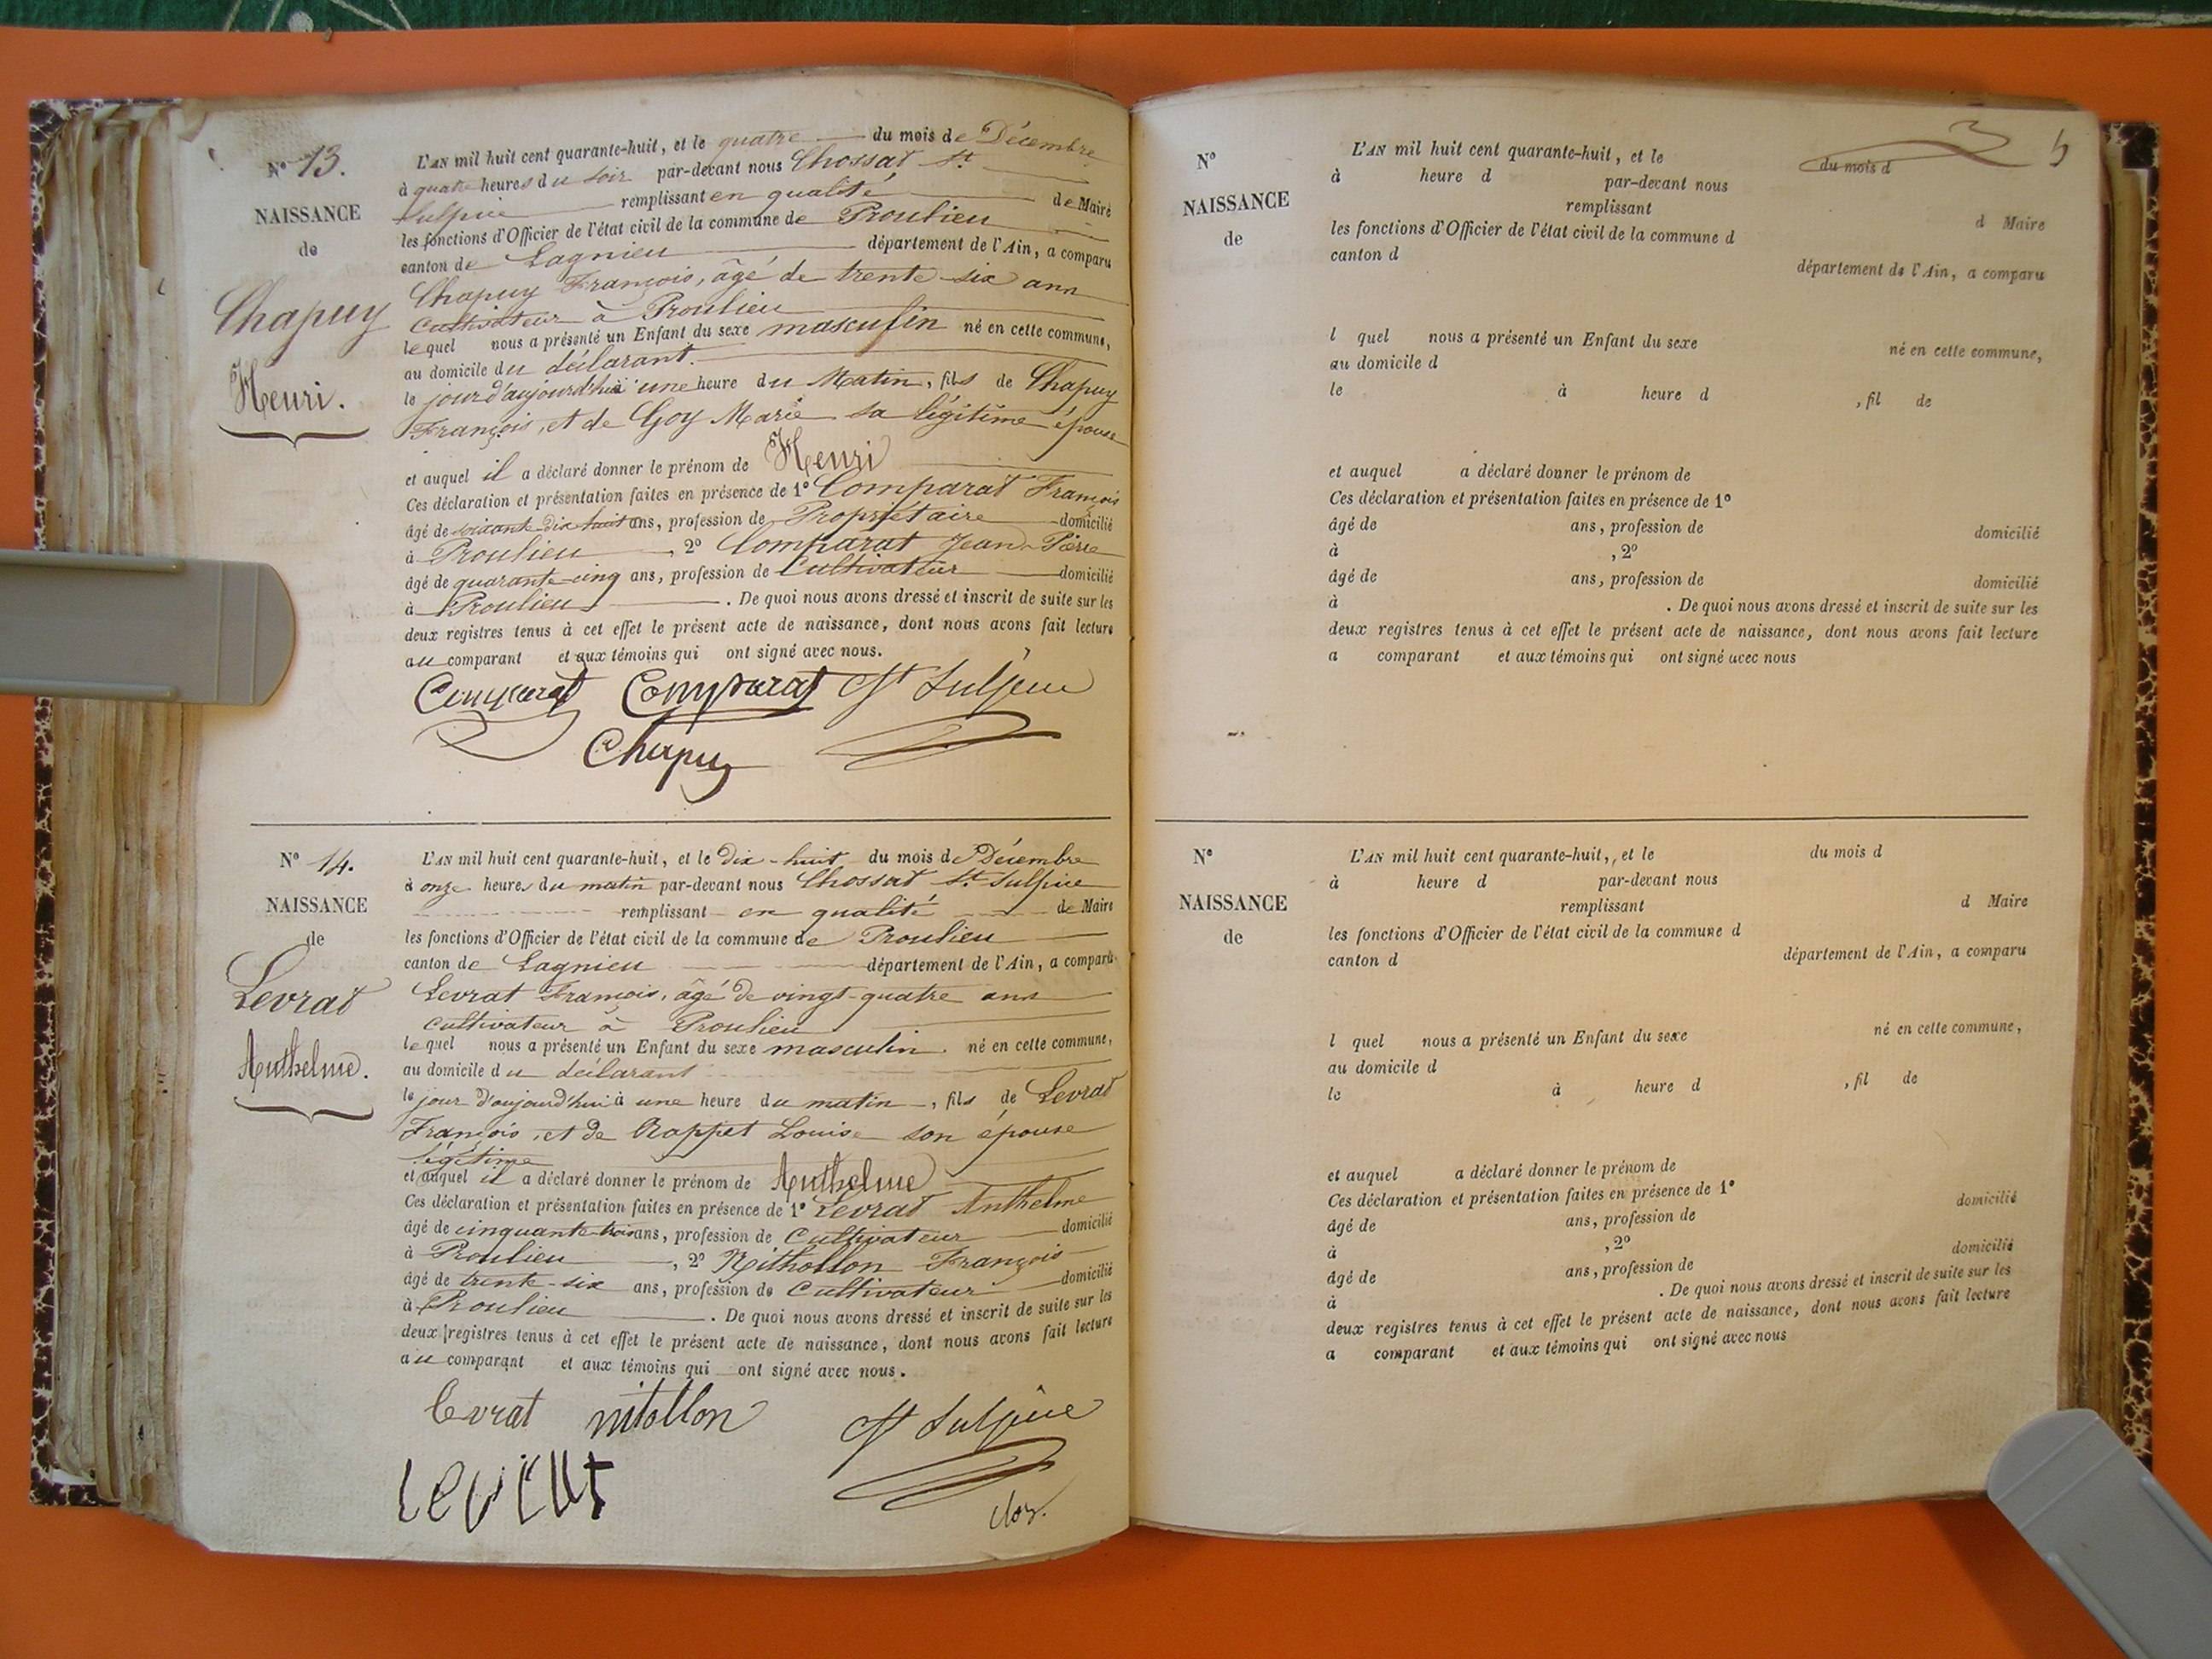 N° 13.
NAISSANCE
de
Chapuy
Henri.
L'AN mil huit cent quarante-huit, et le quatre du mois de Décembre
à quatre heures du soir par-devant nous Chossat St.
Sulpice remplissant en qualité de Maire
les fonctions d'Officier de l'état civil de la commune de Proulieu
canton de Lagnieu département de l'Ain, a comparu
Chapuy François, âgé de trente-six ans
Cultivateur à Proulieu
lequel nous a présenté un Enfant du sexe masculin né en cette commune,
au domicile du déclarant.
le jour d'aujourd'hui à une heure du Matin, fils de Chapuy
François, et de Goy Marie sa légitime épouse
et auquel il a déclaré donner le prénom de Henri
Ces déclaration et présentation faites en présence de 1° Comparat François
âgé de soixante-dix-huit ans, profession de Propriétaire domicilié
à Proulieu, 2° Comparat Jean-Pierre
âgé de quarante-cinq ans, profession de Cultivateur domicilié
à Proulieu. De quoi nous avons dressé et inscrit de suite sur les
deux registres tenus à cet effet le présent acte de naissance, dont nous avons fait lecture
au comparant et aux témoins qui ont signé avec nous.
Comparat Comparat St Sulpice
Chapuy
N° 14.
NAISSANCE
de
Levrat
Anthelme.
L'AN mil huit cent quarante-huit, et le Dix-huit du mois de Décembre
à onze heures du matin par-devant nous Chossat St. Sulpice
remplissant en qualité de Maire
les fonctions d'Officier de l'état civil de la commune de Proulieu
canton de Lagnieu département de l'Ain, a comparu
Levrat François, âgé de vingt-quatre ans
cultivateur à Proulieu
lequel nous a présenté un Enfant du sexe masculin. né en cette commune,
au domicile du déclarant
le jour d'aujourd'hui à une heure du matin, fils de Levrat
François, et de Rappet Louise son épouse
légitime
et auquel il a déclaré donner le prénom de Anthelme
Ces déclaration et présentation faites en présence de 1° Levrat Anthelme
âgé de cinquante-trois ans, profession de Cultivateur domicilié
à Proulieu, 2° Nithollon François
âgé de trente-six ans, profession de Cultivateur domicilié
à Proulieu. De quoi nous avons dressé et inscrit de suite sur les
deux registres tenus à cet effet le présent acte de naissance, dont nous avons fait lecture
au comparant et aux témoins qui ont signé avec nous.
levrat nitollon St Sulpice
levrat
clos.
N°
NAISSANCE
de
L'AN mil huit cent quarante-huit, et le du mois d
à heure d par-devant nous
remplissant d Maire
les fonctions d'Officier de l'état civil de la commune d
canton d département de l'Ain, a comparu
l quel nous a présenté un Enfant du sexe né en cette commune,
au domicile d
le à heure d , fil de
et auquel a déclaré donner le prénom de
Ces déclaration et présentation faites en présence de 1°
âgé de ans, profession de domicilié
à , 2°
âgé de ans, profession de domicilié
à . De quoi nous avons dressé et inscrit de suite sur les
deux registres tenus à cet effet le présent acte de naissance, dont nous avons fait lecture
a comparant et aux témoins qui ont signé avec nous
N°
NAISSANCE
de
L'AN mil huit cent quarante-huit, et le du mois d
à heure d par-devant nous
remplissant d Maire
les fonctions d'Officier de l'état civil de la commune d
canton d département de l'Ain, a comparu
l quel nous a présenté un Enfant du sexe né en cette commune,
au domicile d
le à heure d , fil de
et auquel a déclaré donner le prénom de
Ces déclaration et présentation faites en présence de 1°
âgé de ans, profession de domicilié
à , 2°
âgé de ans, profession de domicilié
à . De quoi nous avons dressé et inscrit de suite sur les
deux registres tenus à cet effet le présent acte de naissance, dont nous avons fait lecture
a comparant et aux témoins qui ont signé avec nous